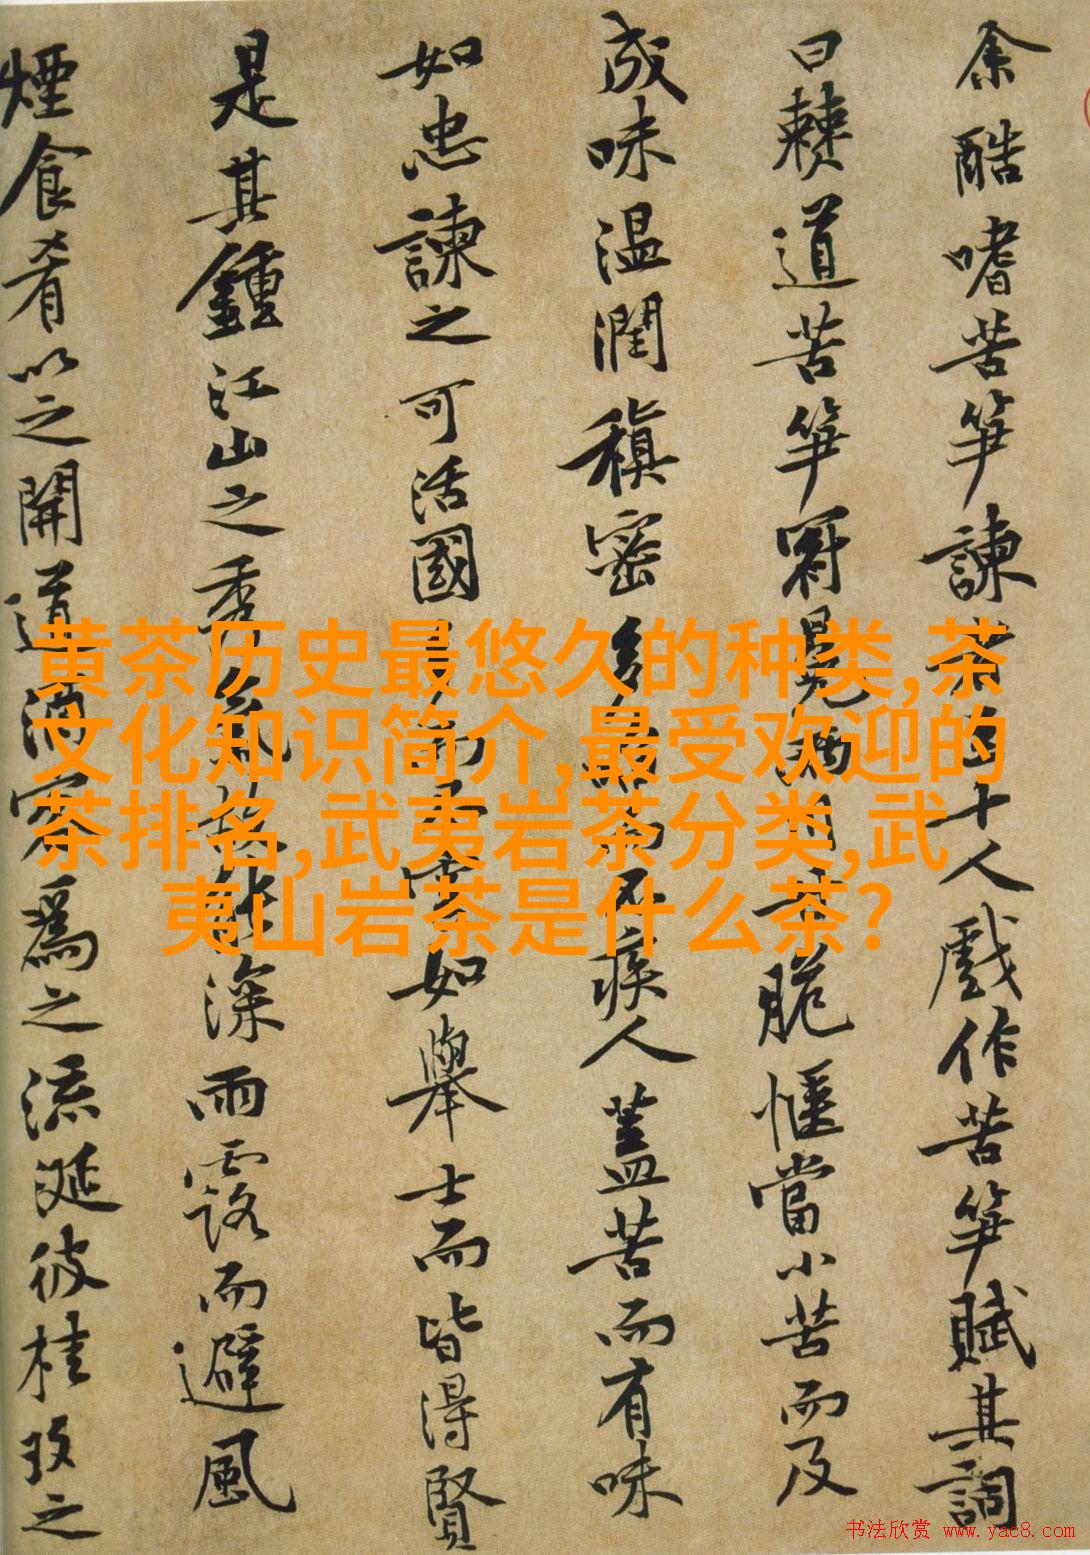 余酷嗜苦笋諫者至十人戲作苦笋賦其詞
曰僰道苦笋冠冕兩川甘脆愜當小苦而及
成味温潤稹密多啗而不疾人蓋苦而有味
如忠諫之可活國多而不害如舉士而皆得賢
是其鍾江山之秀氣故能深雨露而避風
煙食肴以之開道酒客為之流涎彼桂玫之
黄茶历史最悠久的种类,茶
文化知识简介,最受欢迎的
茶排名,武夷岩茶分类,武
夷山岩茶是什么茶?
书法欣赏 www.yac8.com